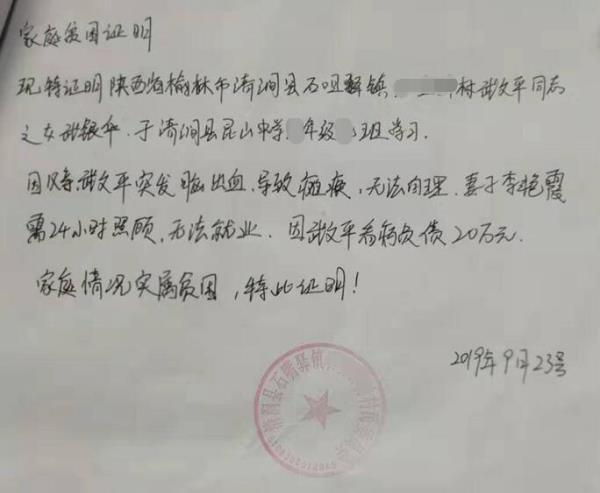 家庭贫困证明
现特证明陕西省榆林市清涧县石咀驿镇 村武文平同志
之女武银伞,于清涧县昆山中学 年级 班学习.
因 武文平突发脑出血,导致瘫痪,无法自理.妻子李艳霞
需24小时照顾,无法就业.因武文平看病负债20万元.
家庭情况实属贫困,特此证明!
2019年9月23号
清涧县石咀驿镇